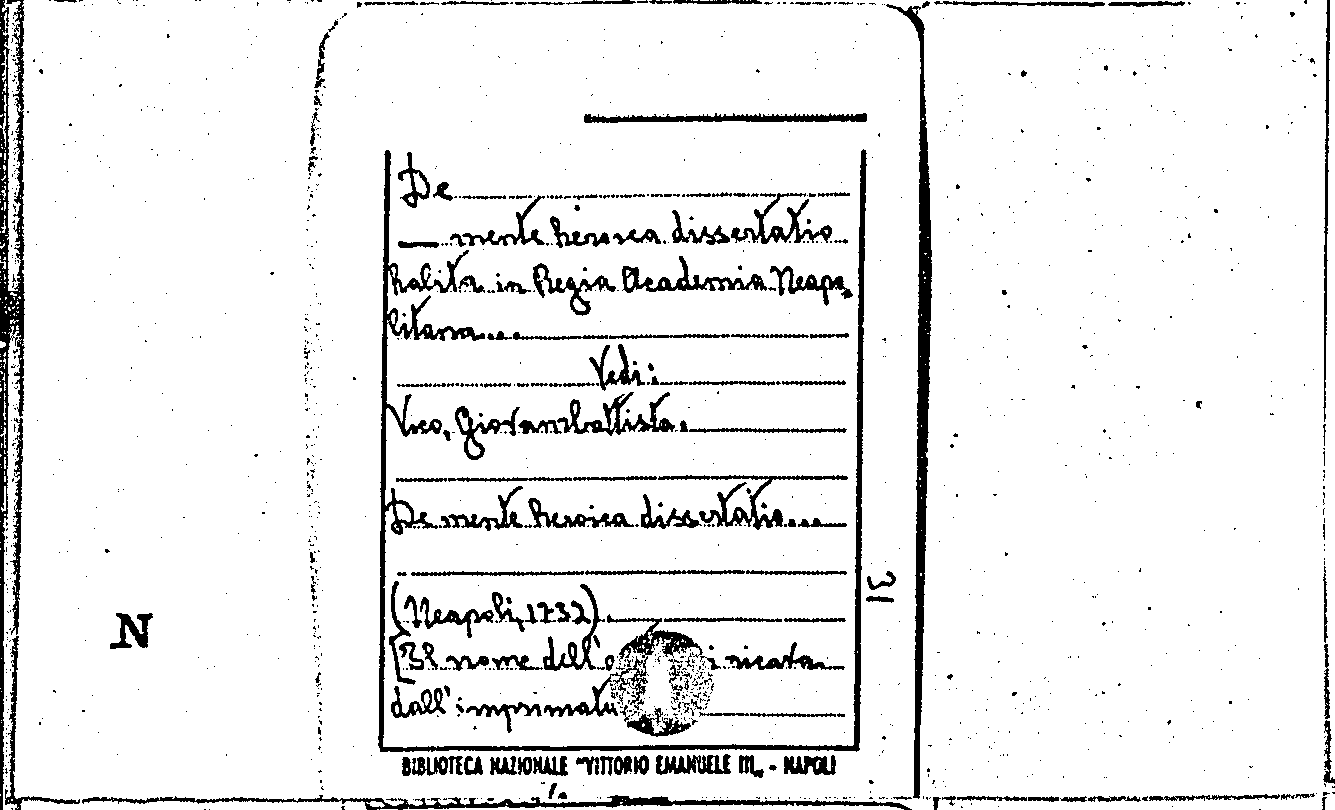 De
— mente heroica dissertatio
habita in Regia Academia Neapo-
litana...
Vedi:
Vico, Giovambattista.
De mente heroica dissertatio...
(Neapoli, 1732).
[Il nome dell'a i ricava
dall'imprimatu
31
N
BIBLIOTECA NAZIONALE "VITTORIO EMANUELE III„ - NAPOLI